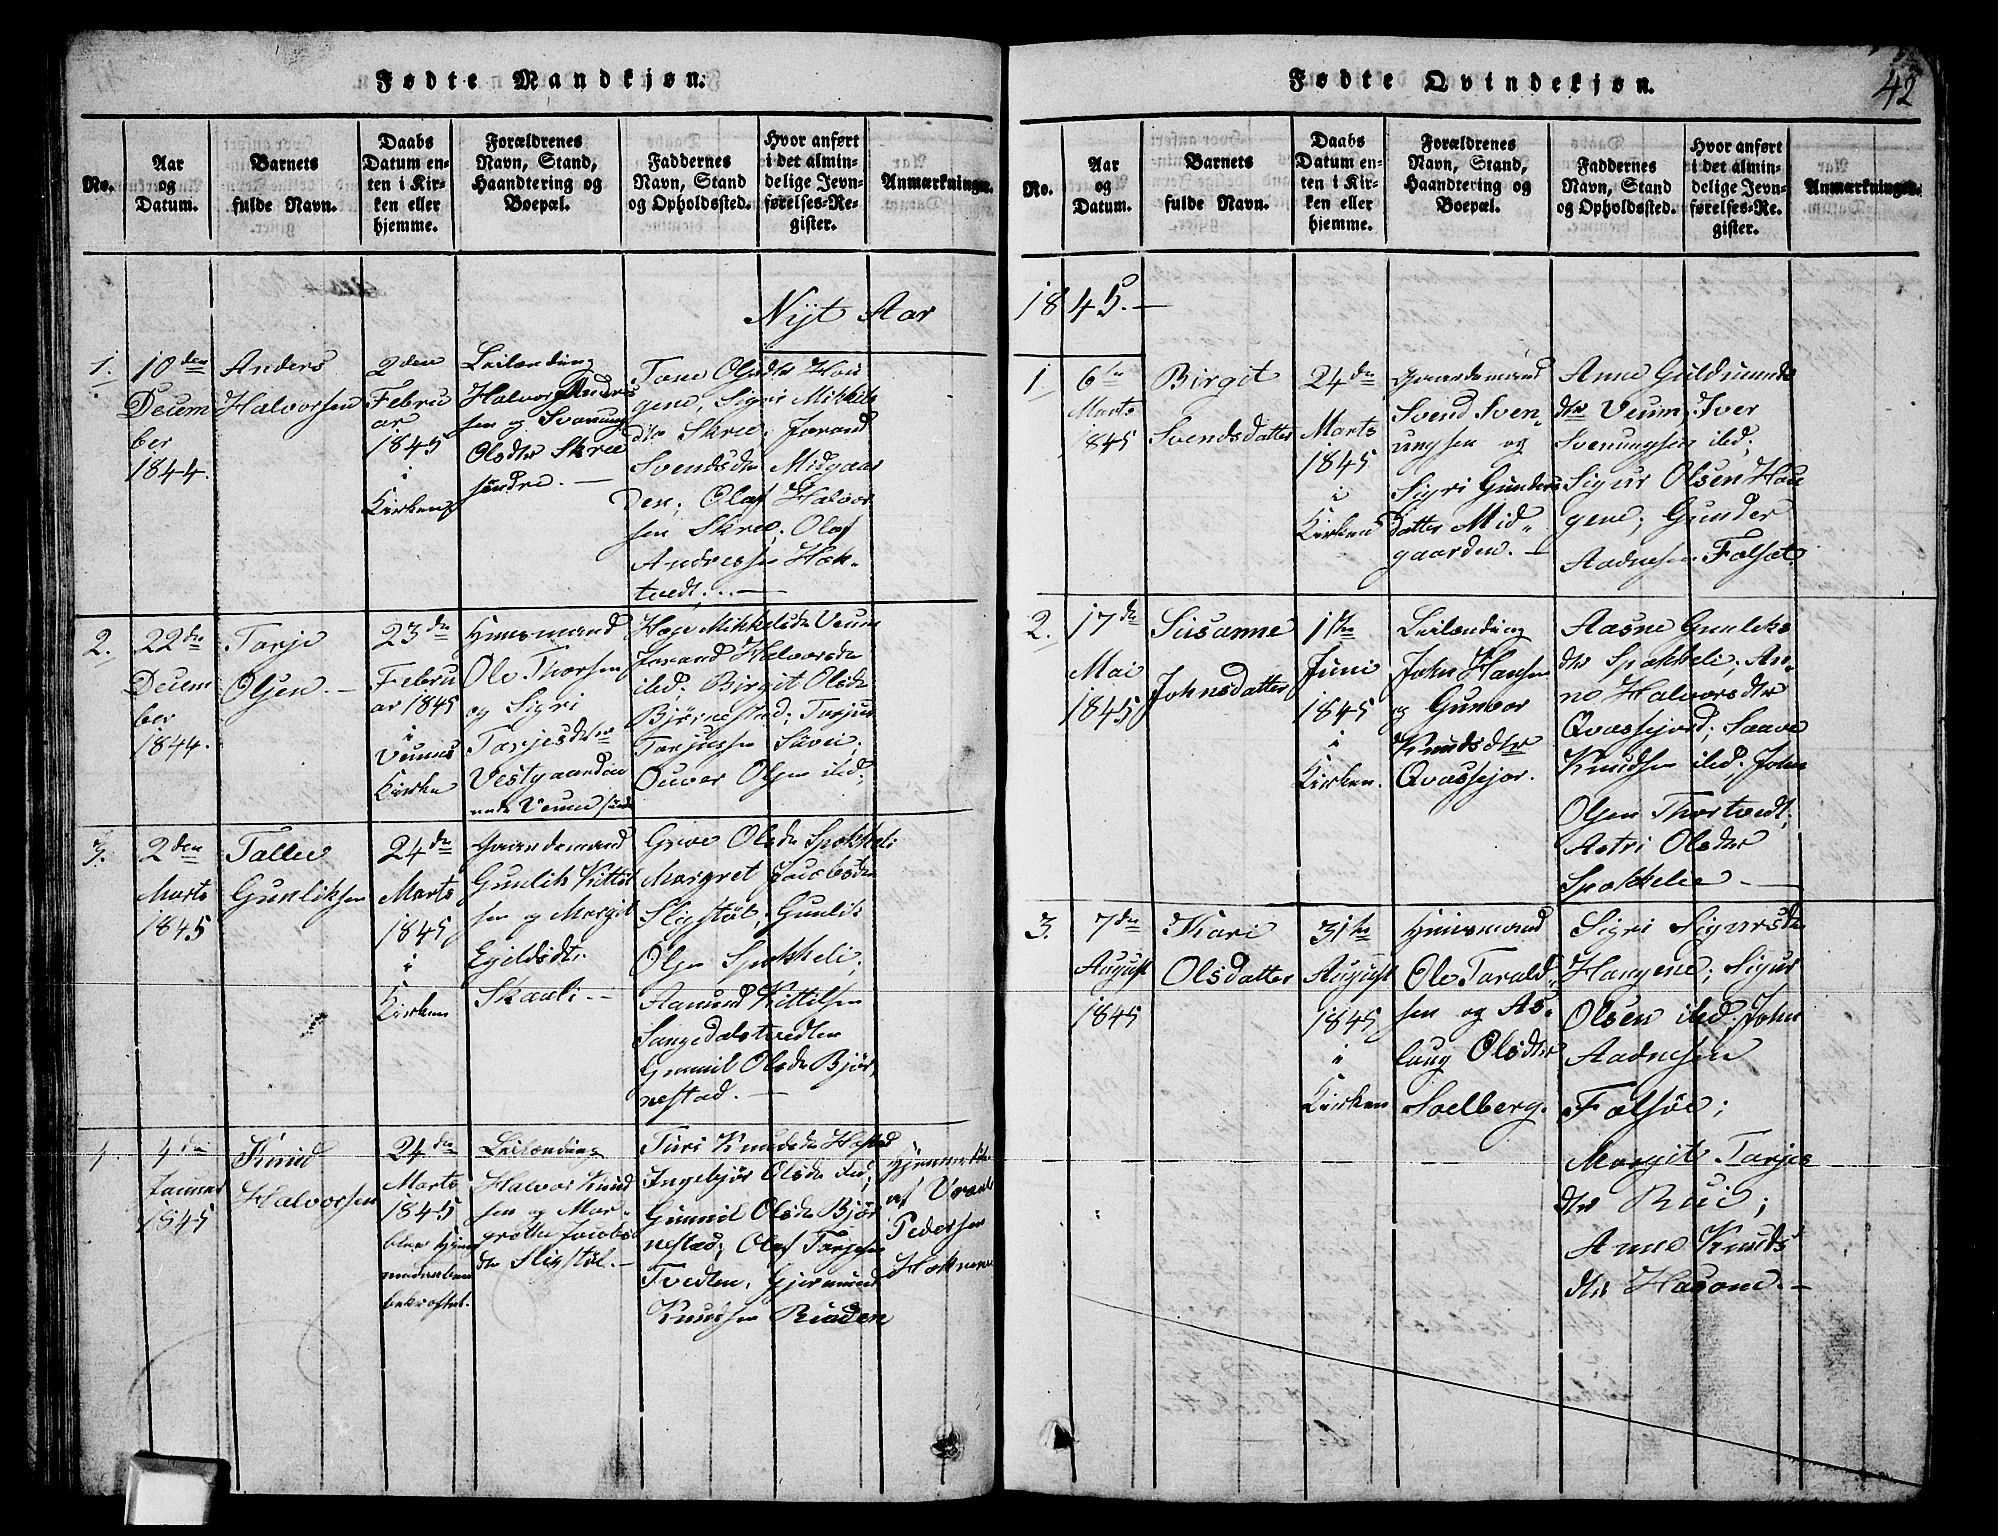 Fødte Mandkjøn.
No.
Aar
og
Datum.
Barnets
fulde Navn.
Daabs
Datum en-
ten i Kir-
ken eller
hjemme.
Forældrenes
Navn, Stand,
Haandtering og
Boepæl.
Faddernes
Navn, Stand
og Opholdssted.
Hvor anført
i det almin-
delige Jevn-
førelses-Re-
gister.
Anmærkninger.
Nyt Aar
1.
10den
Decem
ber
1844.
Anders
Halvorsen
2den
Febru
ar
1845
i
Kirken
Leilænding
Halvor Anders
sen og Svanaug
Olsdtr Skree
søndre. —
Tone Olsdtr Hou
gene, Sigri Mikkels
dtr Skree, Jorand
Svendsdtr Midgaar
den, Olaf Halvor
sen Skree, Olaf
Andressen Hæk-
tvedt. —
2.
22de
Decem
ber
1844.
Tarje
Olsen. —
23de
Febru
ar 1845
i
Veums
Kirke
Huusmand
Ole Thorsen
og Sigri
Tarjesdtr
Vestgaarden
Veum
Hæge Mikkelsdtr Veum
Jorand Halvorsdtr
ibd. Birgit Olsdtr
Bjørnestad; Tarjur
Tarjussen
Ouver Olsen ibd;
3.
2den
Marts
1845
Tallev
Gunliksen
24de
Marts
1845
i
Kirken
Gaardemand
Gunlik Kittel
sen og Margit
Egildsdtr
Skaali —
Grive Olsdtr Spokkeli
Margret Jacobsdtr
Sligstøl, Gunlik
Olsen Spokkeli;
Aamund Kittilsen
Sangedalstvedten
Gunnil Olsdtr Bjør
nestad. —
4
4de
Januar
1845
Knud
Halvorsen
24de
Marts
1845
blev Hjem
medaaben
bekræftet.
Leilænding
Halvor Knud
sen og Mar-
grette Jacobs
dtr Sligstøl. —
Turi Knudsdtr
Ingebjør Olsdtr ibd;
Gunnil Olsdtr Bjør
nestad; Olaf Tarjesen
Tvedten, Gjermund
Knudsen Rinden
Hjemmedøbt
af
Pedersen
Fødte Qvindekjøn.
42
No.
Aar
og
Datum.
Barnets
fulde Navn.
Daabs
Datum en-
ten i Kir-
ken eller
hjemme.
Forældrenes
Navn, Stand,
Haandtering og
Boepæl.
Faddernes
Navn, Stand
og Opholdssted.
Hvor anført
i det almin-
delige Jevn-
førelses-Re-
gister.
Anmærkninger.
1845. —
1
6te
Marts
1845
Birgit
Svendsdatter
24de
Marts
1845
i
Kirken
Gaardemand
Svend Sven-
ungsen og
Sigri Gunders
datter Mid-
gaarden. —
Anne Guldmunds
dtr Veum, Iver
Svenungsen ibd;
Sigur Olsen Hou
gene; Gunder
Aadnesen Folsæt
2.
17de
Mai
1845
Susanne
Johnsdatter
1ste
Juni
1845
i
Kirken.
Leilænding
John Hansen
og Gunvor
Knudsdtr
Qvassejor.
Aasne Gunliks
dtr Spokkeli; An-
ne Halvorsdtr
Qvassejord; Saave
Knudsen ibd; John
Olsen Thortvedt;
Astri Olsdtr
Spokkelie —
3.
7de
August
1845
Kari
Olsdatter
31te
August
1845
i
Kirken
Huusmand
Ole Tarald-
sen og As-
laug Olsdtr
Soelberg.
Sigri Sigursdtr
Haugene; Sigur
Olsen ibd; John
Aadnesen
Folsøe;
Margit Tarjes
dtr Rui;
Anne Knuds
dtr HaSome. —